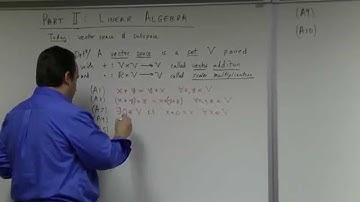 PART II: LINEAR ALGEBRA
Today: vector space & subspace
Def: A vector space is a set V paired
with + : V×V → V called vector addition
and · : R×V → V called scalar multiplication
(A1) x + y = y + x ∀x,y ∈ V
(A2) (x+y)+z = x+(y+z) ∀x,y,z ∈ V
(A3) ∃ 0 ∈ V s.t. x+0 = x ∀x ∈ V
(A4)
(A9)
(A10)